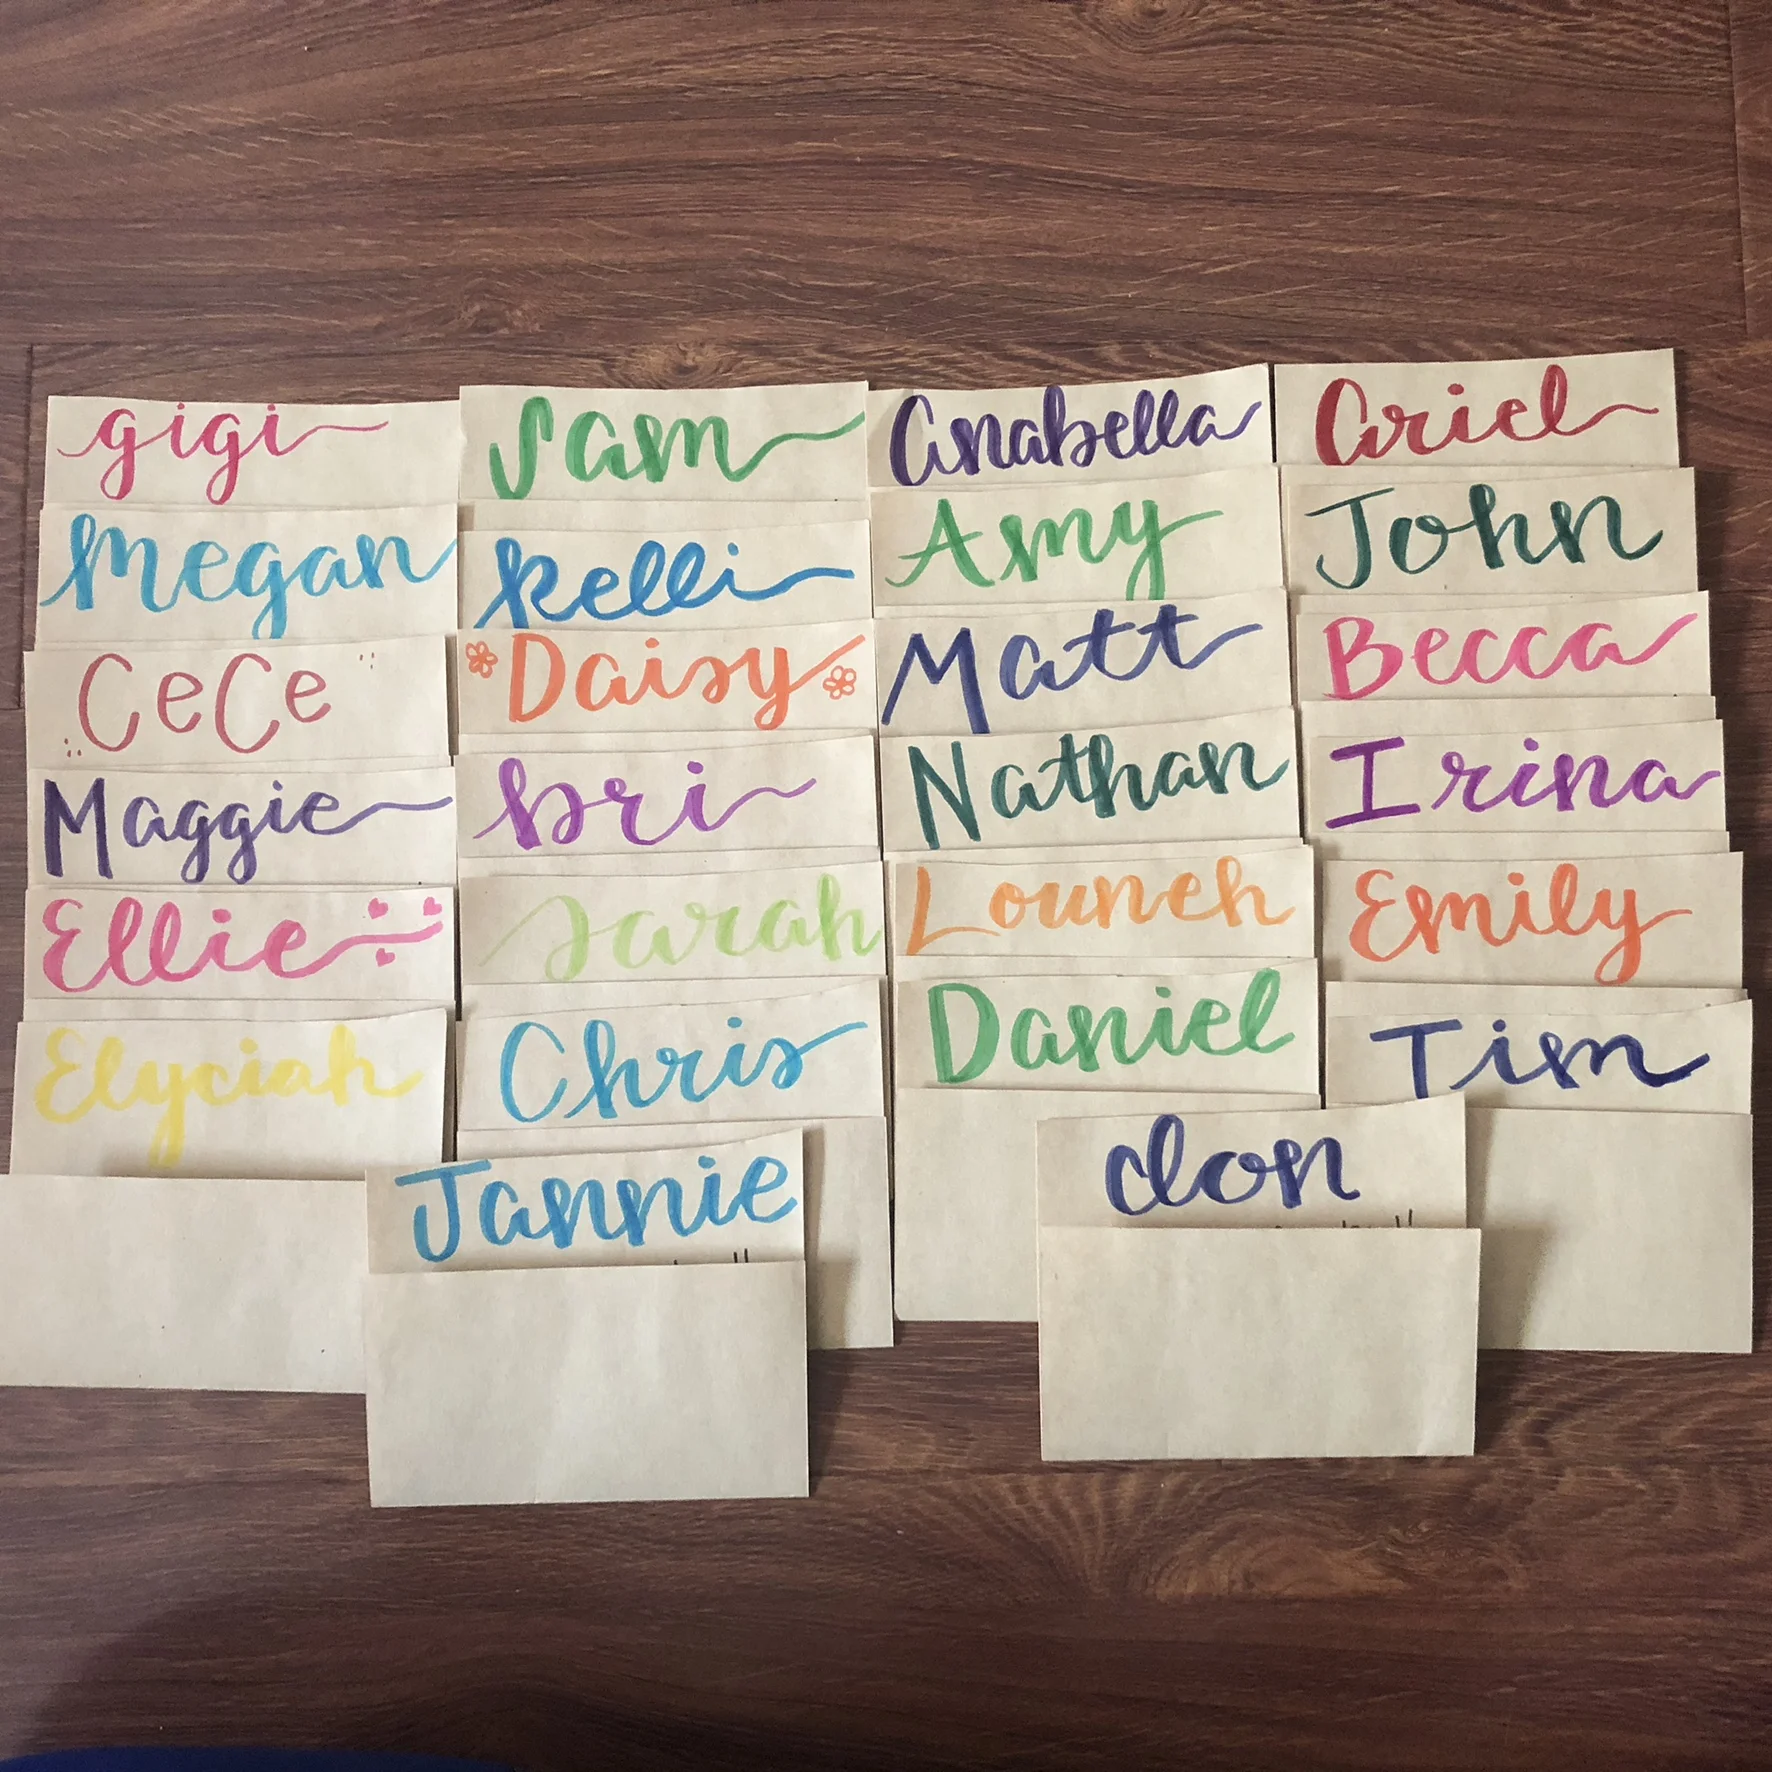 gigi
Sam
Anabella
Ariel
Megan
kelli
Amy
John
CeCe
Daisy
Matt
Becca
Maggie
bri
Nathan
Irina
Ellie
Sarah
Louneh
Emily
Elyciah
Chris
Daniel
Tim
Jannie
don